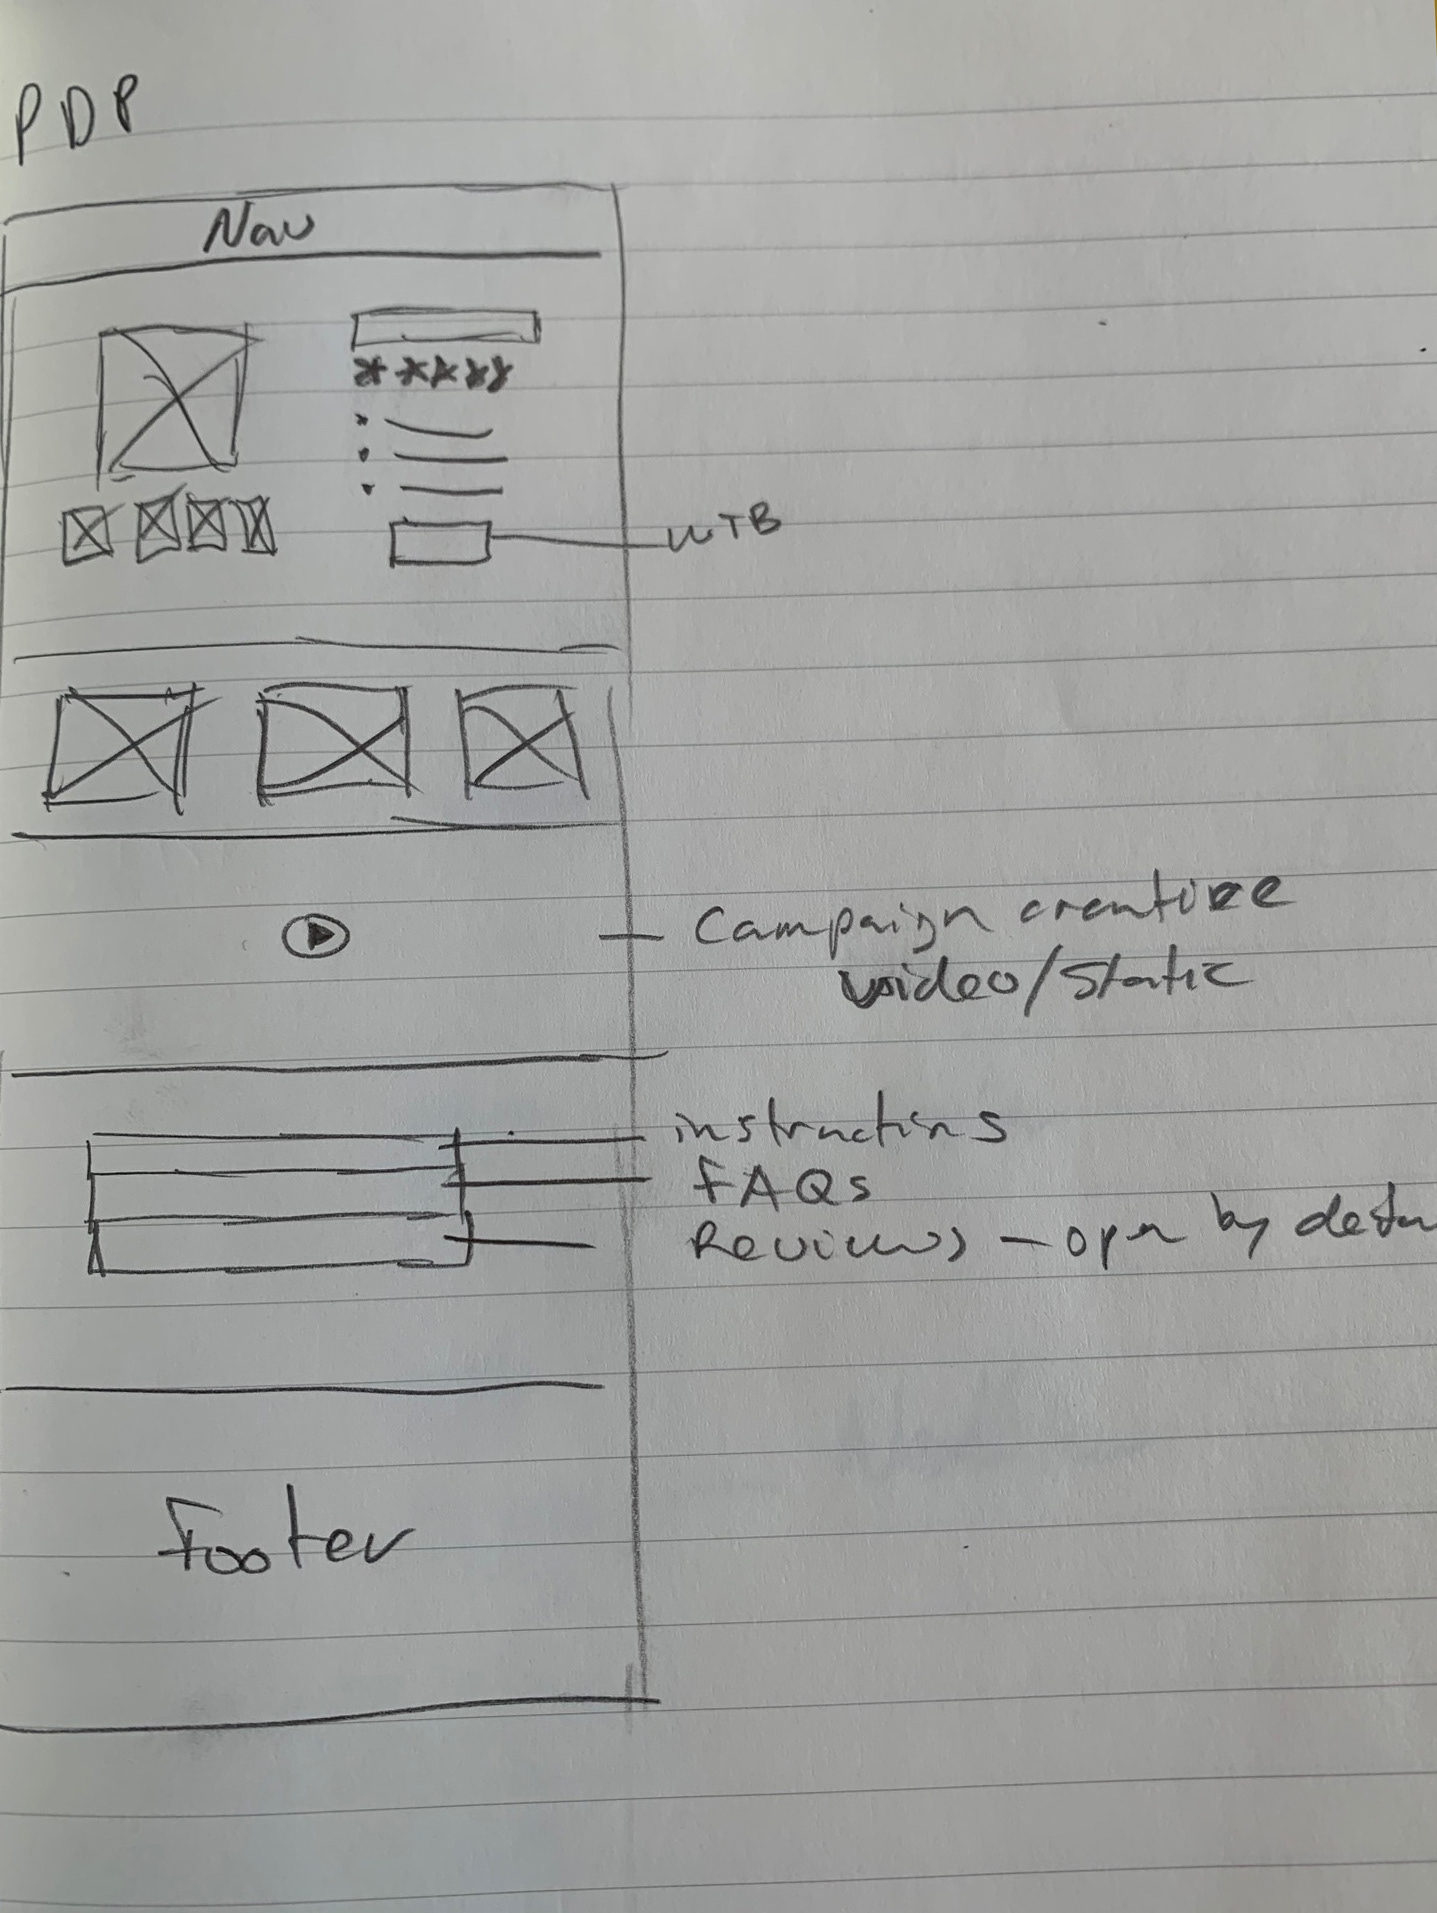 PDP
Nav
WTB
Campaign creative
video/static
instructions
FAQs
Reviews - open by
Footer